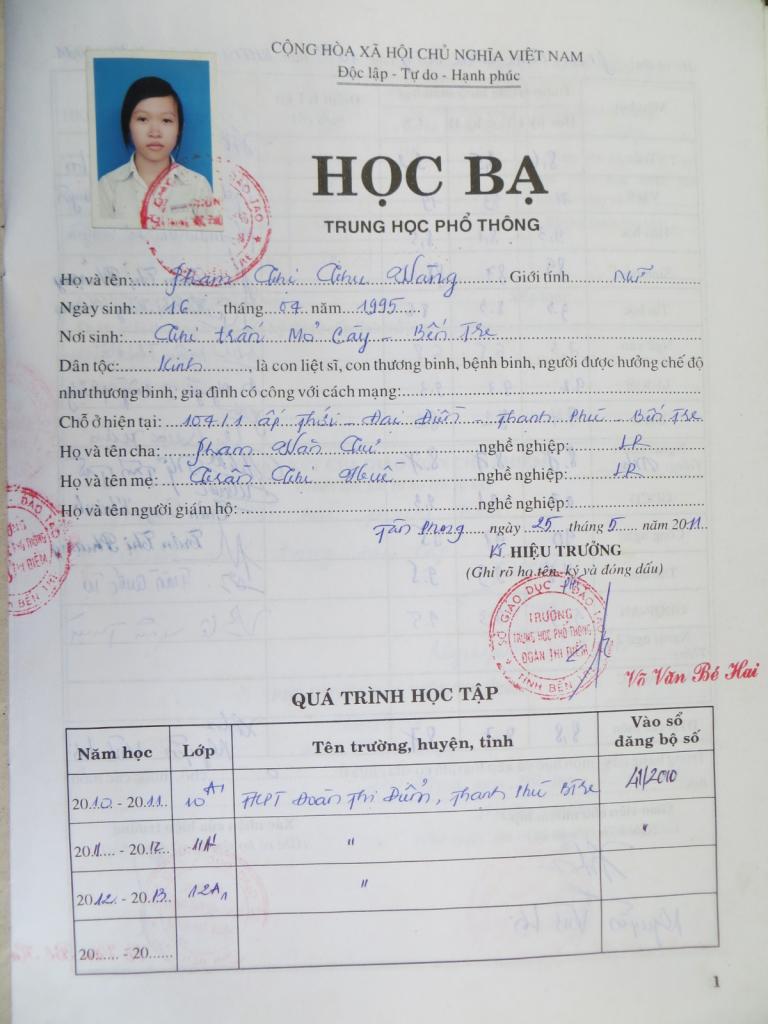 CỘNG HÒA XÃ HỘI CHỦ NGHĨA VIỆT NAM
Độc lập - Tự do - Hạnh phúc
HỌC BẠ
TRUNG HỌC PHỔ THÔNG
Họ và tên: Phạm Thị Thu Giới tính Nữ
Ngày sinh: 16 tháng 07 năm 1995
Nơi sinh: Thị trấn Mỏ Cày - Bến Tre
Dân tộc: Kinh, là con liệt sĩ, con thương binh, bệnh binh, người được hưởng chế độ
như thương binh, gia đình có công với cách mạng:
Chỗ ở hiện tại: ấp - Đại Điền - Thạnh Phú - Bến Tre
Họ và tên cha: Phạm Văn nghề nghiệp: LR
Họ và tên mẹ: Trần Thị Huê nghề nghiệp: LR
Họ và tên người giám hộ: nghề nghiệp:
Tân Phong ngày 25 tháng 5 năm 2011
HIỆU TRƯỞNG
(Ghi rõ họ tên, ký và đóng dấu)
SỞ GIÁO DỤC ĐÀO TẠO
TRƯỜNG
TRUNG HỌC PHỔ THÔNG
ĐOÀN THỊ ĐIỂM
TỈNH BẾN TRE
Võ Văn Bé Hai
QUÁ TRÌNH HỌC TẬP
Năm học Lớp Tên trường, huyện, tỉnh Vào sổ đăng bộ số
2010 - 2011 10A1 THPT Đoàn Thị Điểm, Thạnh Phú BTre 41/2010
2011 - 2012 11A1 " "
2012 - 2013 12A1 "
20...... - 20......
1